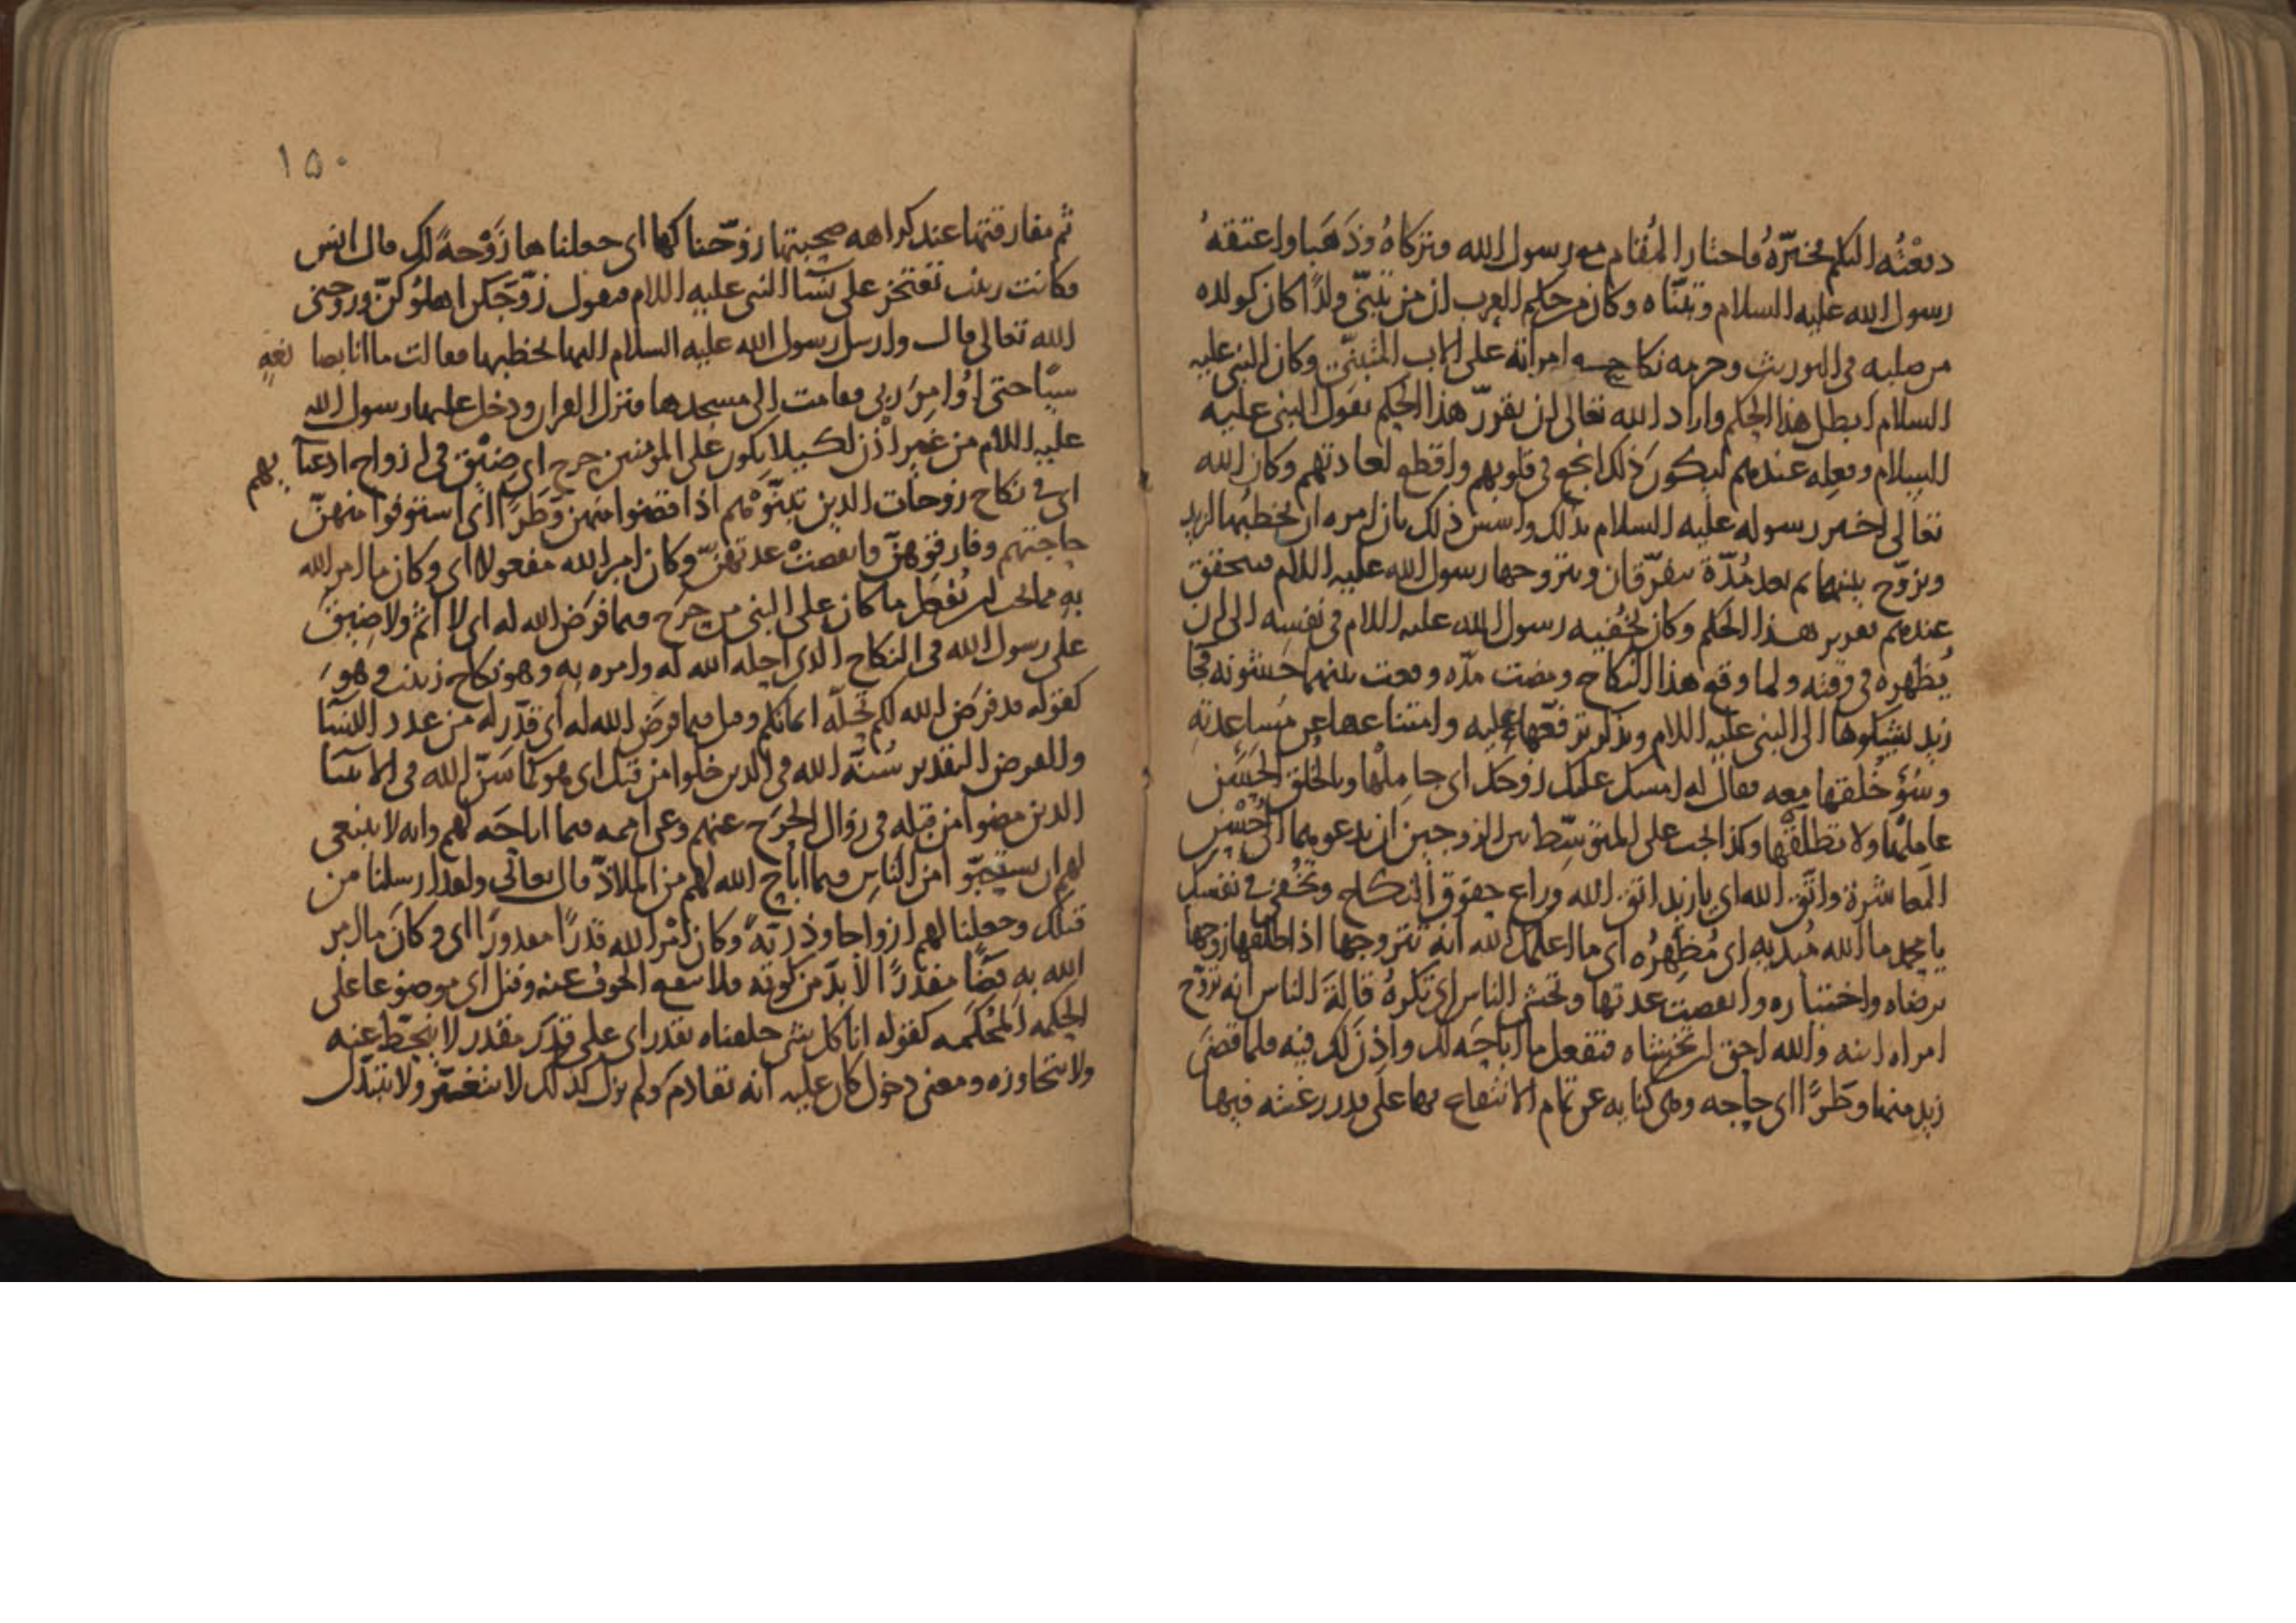 دفعته اليكم فخيّره فاختار المُقام مع رسول الله وتركاهُ وذَهَبا واعتقهُ
رسول الله عليه السلام وتبنّاه وكان من حكم العرب ان من تبنّى ولدًا كان كولده
من صلبه في التوريث وحرمه نكاح امراته على الاب المتبنّي وكان النبي عليه
السلام ابطل هذا الحكم واراد الله تعالى ان يقرّر هذا الحكم بقول النبي عليه
السلام وفعله عندهم ليكون ذلك انجع في قلوبهم واقطع لعادتهم وكان الله
تعالى اخبر رسوله عليه السلام بذلك واسس ذلك بان امره ان يخطبها لزيد
ويزوّج بينهما ثم بعد مُدّة يتفرّقان ويتزوجها رسول الله عليه السلام فيتحقق
عندهم تقرير هذا الحكم وكان يُخفيه رسول الله عليه السلام في نفسه الى ان
يُظهره في وقته ولما وقع هذا النكاح ومضت مدّه ووقعت بينهما خشونه فجا
زيد يشكوها الى النبي عليه السلام ويذكر ترفّعها عليه وامتناعها عن مساعدته
وسُؤ خُلقها معه فقال له امسك عليك زوجك اي جاملها وبالخلق الحَسَن
عاملها ولا تطلقها وكذا يجب على المتوسّط بين الزوجين ان يدعوهما الى حُسْن
المعاشرة واتّق الله اي يا زيد اتق الله وراع حقوق النكاح وتُخفي في نفسك
يا محمد ما الله مُبديه اي مُظهِرُه اي ما اعلمك الله انه تتزوجها اذا طلقها زوجها
برضاه واختياره وانقضت عدتها وتخشى الناس اي تكرهُ قالةَ الناس انه تزوّج
امراه ابنه والله احق ان تخشاه فتفعل ما اباحَه لك واذِنَ لك فيه فلما قضى
زيد منها وطَرًا اي حاجه وهي كنايه عن تمام الانتفاع بها على قدر رغبته فيها
١٥٠
ثم مفارقتها عند كراهه صحبتها زوّجناكها اي جعلناها زَوْجةً لك قال انس
فكانت زينب تفتخر على نسآ النبي عليه السلام فتقول زوّجكن اهلوكنّ وزوجني
الله تعالى قال وارسل رسول الله عليه السلام اليها يخطبها فقالت ما انا بصانعةٍ
شيًا حتى اُوامِرَ ربي فقامت الى مسجدها فنزل القران ودخل عليها رسول الله
عليه السلام من غير اذن لكيلا يكون على المومنين حرج اي ضِيْق في ازواج ادعيآيهم
اي في نكاح زوجات الذين تبنّوْهم اذا قضوا منهن وَطَرًا اي استوفوا منهنّ
حاجتهم وفارقوهنّ وانقضتْ عدتهنّ وكان امر الله مفعولا اي وكان ما امر الله
به مما يجب ان يُفعَل ما كان على النبي من حرَج فيما فرَض الله له اي لا اثم ولا ضِيق
على رسول الله في النكاح الذي احله الله له وامره به وهو نكاح زينب وهوَ
كقوله قد فرَض الله لكم تحلّه ايمانكم وقيل فيما فرَض الله له اي قدّر له من عدد النسآ
والفرض التقدير سُنّة الله في الذين خلوا من قبل اي هو كما سَنّ الله في الانبيآ
الذين مضوا من قبله في زوال الحَرَج عنهم وعن اممه فيما اباحَه لهم وانه لا ينبغي
لهم ان يستحيوا من الناس فيما اباح الله لهم من الملاذّ قال تعالى ولقد ارسلنا من
قبلك وجعلنا لهم ازواجا وذريّةً وكان امْر الله قدَرًا مقدورًا اي وكان ما امر
الله به قضًا مقدرًا لابدّ من كونه فلا ينفع الخوف عنه وقيل اي موضوعا على
الحكمه المُحْكَمه كقوله انا كل شي خلقناه بقدر اي على قدَر مقدر لا ينحَطّ عنه
ولا يتجاوزه ومعنى دخول كان عليه انه تقادم ولم يزل كذلك لا يتغيّر ولا يتبدّل